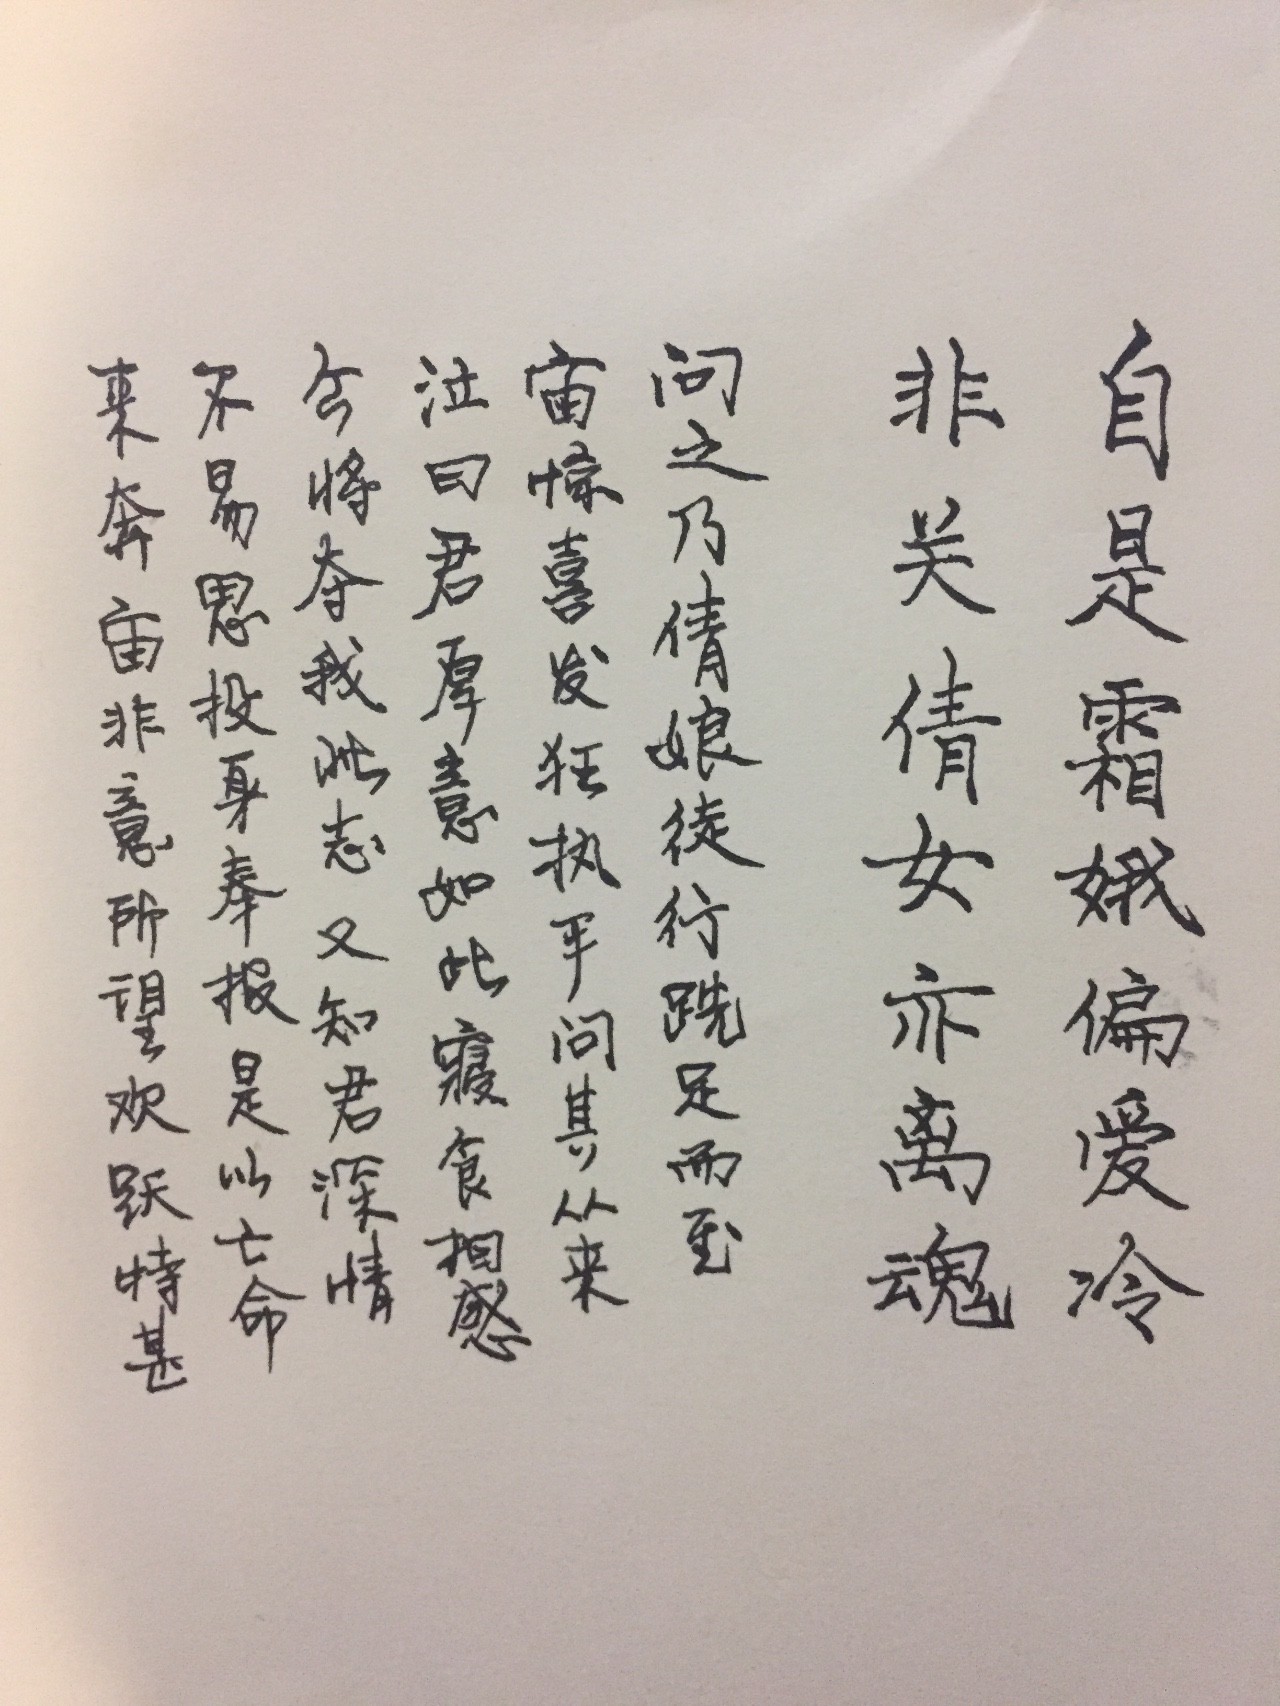 自是霜娥偏爱冷
非关倩女亦离魂
问之乃倩娘徒行跣足而至
宙惊喜发狂执手问其从来
泣曰君厚意如此寝食相感
今将夺我此志又知君深情
不易思投身奉报是以亡命
来奔宙非意所望欢跃特甚